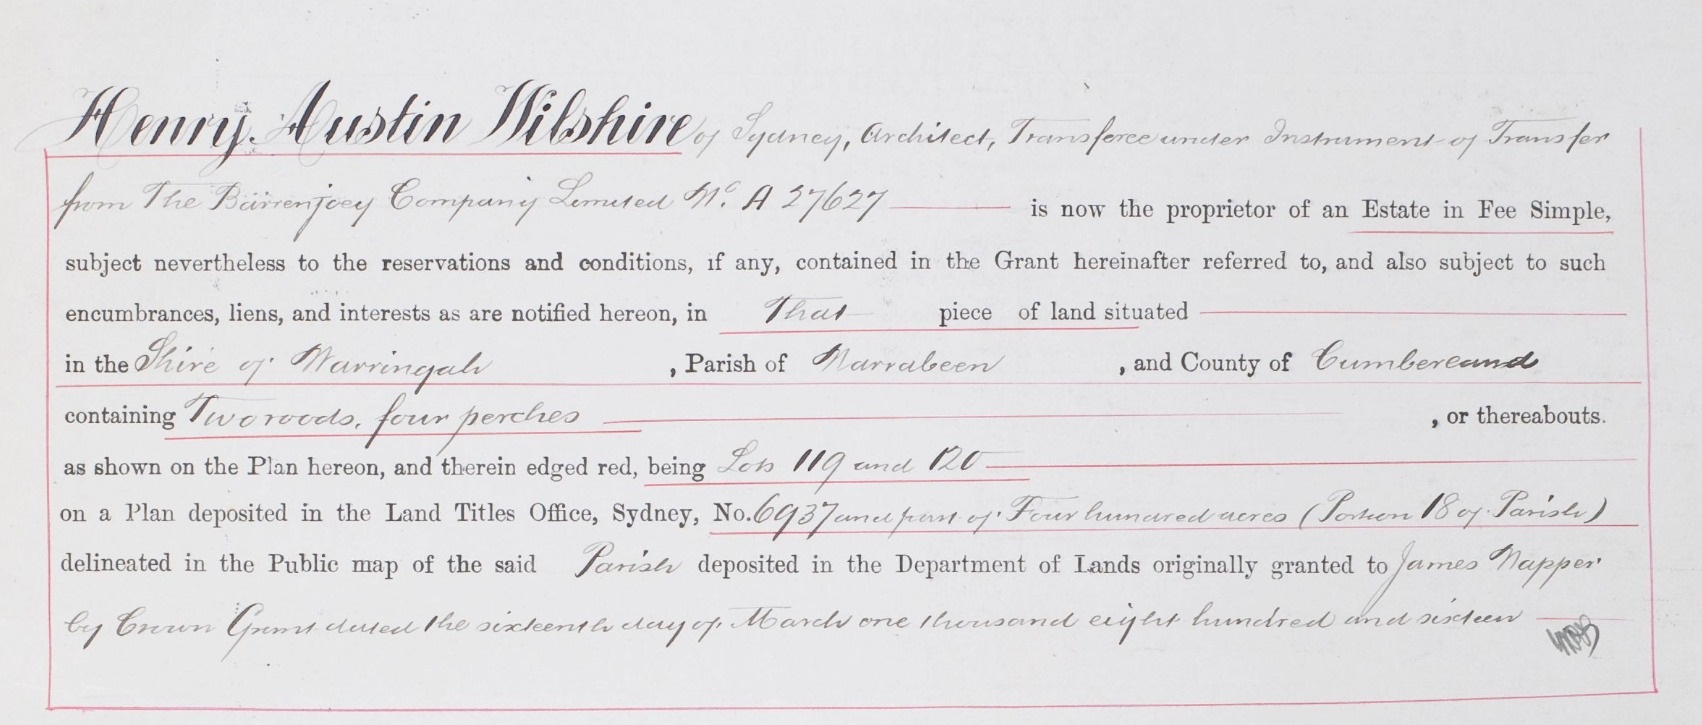 Henry Austin Wilshire of Sydney, Architect, Transferee under Instrument of Transfer
from The Barrenjoey Company Limited No. A 27627 is now the proprietor of an Estate in Fee Simple,
subject nevertheless to the reservations and conditions, if any, contained in the Grant hereinafter referred to, and also subject to such
encumbrances, liens, and interests as are notified hereon, in That piece of land situated
in the Shire of Warringah, Parish of Narrabeen, and County of Cumberland
containing Two roods, four perches, or thereabouts.
as shown on the Plan hereon, and therein edged red, being Lots 119 and 120
on a Plan deposited in the Land Titles Office, Sydney, No. 6937 and part of Four hundred acres (Portion 18 of Parish)
delineated in the Public map of the said Parish deposited in the Department of Lands originally granted to James Napper
by Crown Grant dated the sixteenth day of March one thousand eight hundred and sixteen